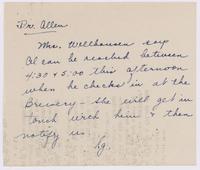 Dr. Allen
Mrs. Wellhausen say
Al can be reached between
4:30 & 5:00 this afternoon
when he checks in at the
Brewery - She will get in
touch with him & then
notify us.
hg.